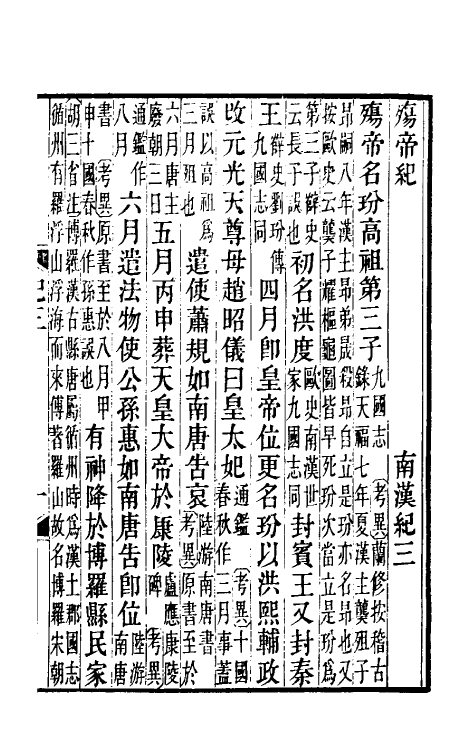 殤帝紀　南漢紀三
殤帝名玢高祖第三子九國志（考異）蘭修按稽古錄天福七年夏漢主龔殂子
昂嗣八年漢主昂弟晟殺昂自立是玢亦名昂也又按歐史云龔子耀樞龜圖皆早死玢次當立是玢爲
第三子薛史云長子誤也初名洪度歐史南漢世家九國志同封賓王又封秦
王薛史劉玢傳九國志同四月卽皇帝位更名玢以洪熙輔政
改元光天尊母趙昭儀曰皇太妃通鑑（考異）十國春秋作三月事蓋
誤以高祖爲三月殂也遣使蕭規如南唐告哀陸游南唐書（考異）原書至於
六月唐主廢朝三日五月丙申葬天皇大帝於康陵盧應康陵碑（考異）
通鑑作八月六月遣法物使公孫惠如南唐告卽位陸游南唐
書（考異）原書至於八月甲申十國春秋作孫惠誤也有神降於博羅縣民家
胡三省注博羅漢古縣唐屬循州時爲漢土郡國志循州有羅浮山浮海而來傅著羅山故名博羅宋朝
紀三　一